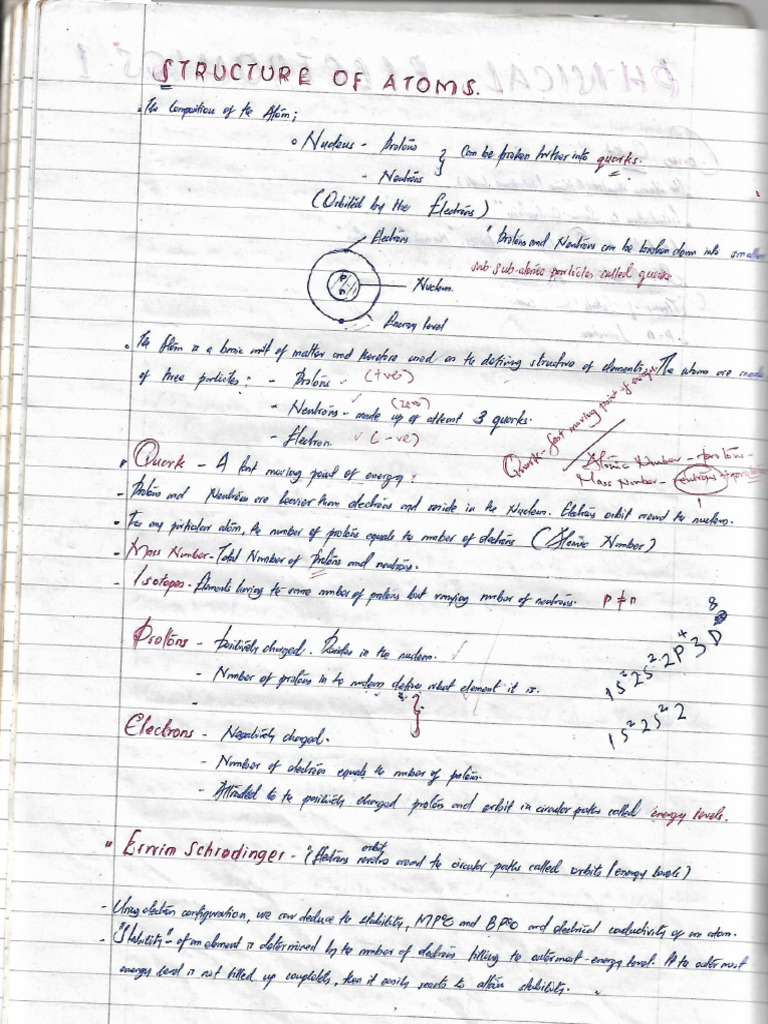 STRUCTURE OF ATOMS.
The Composition of the Atom;
Nucleus - Protons
- Neutrons } Can be broken further into quarks.
(Orbited by the Electrons)
Electrons
" Protons and Neutrons can be broken down into smaller
sub sub-atomic particles called quarks
Nucleus.
Energy level
The Atom is a basic unit of matter and therefore used as the defining structure of elements. The atoms are made
of three particles; - Protons (+ve)
- Neutrons - made up of atleast 3 quarks. (zero)
- Electron (-ve)
Quark - fast moving point of energy.
Atomic Number - protons
Mass Number - neutrons +protons
Quark - A fast moving point of energy.
- Protons and Neutrons are heavier than electrons and reside in the Nucleus. Electrons orbit around te nucleus.
- For any particular atom, the number of protons equals to number of electrons (Atomic Number)
- Mass Number - Total Number of Protons and neutrons.
- Isotopes - Elements having te same number of protons but varying number of neutrons. P ≠ n
8
Protons - Positively charged. Resides in the nucleus.
- Number of protons in te nucleus define what element it is.
1S² 2S² 2P⁺ 3D
1S² 2S² 2
Electrons - Negatively charged.
- Number of electrons equals te number of protons.
- Attracted to te positively charged protons and orbit in circular paths called energy levels.
" Erwin Schrodinger - "(Electrons orbit around te circular paths called orbits / energy levels)
- Using electron configuration, we can deduce te stability, MP°C and BP°C and electrical conductivity of an atom.
- "Stability" - of an element is determined by te number of electrons filling te outermost-energy level. If te outermost
energy level is not filled up completely, then it easily reacts to attain stability.